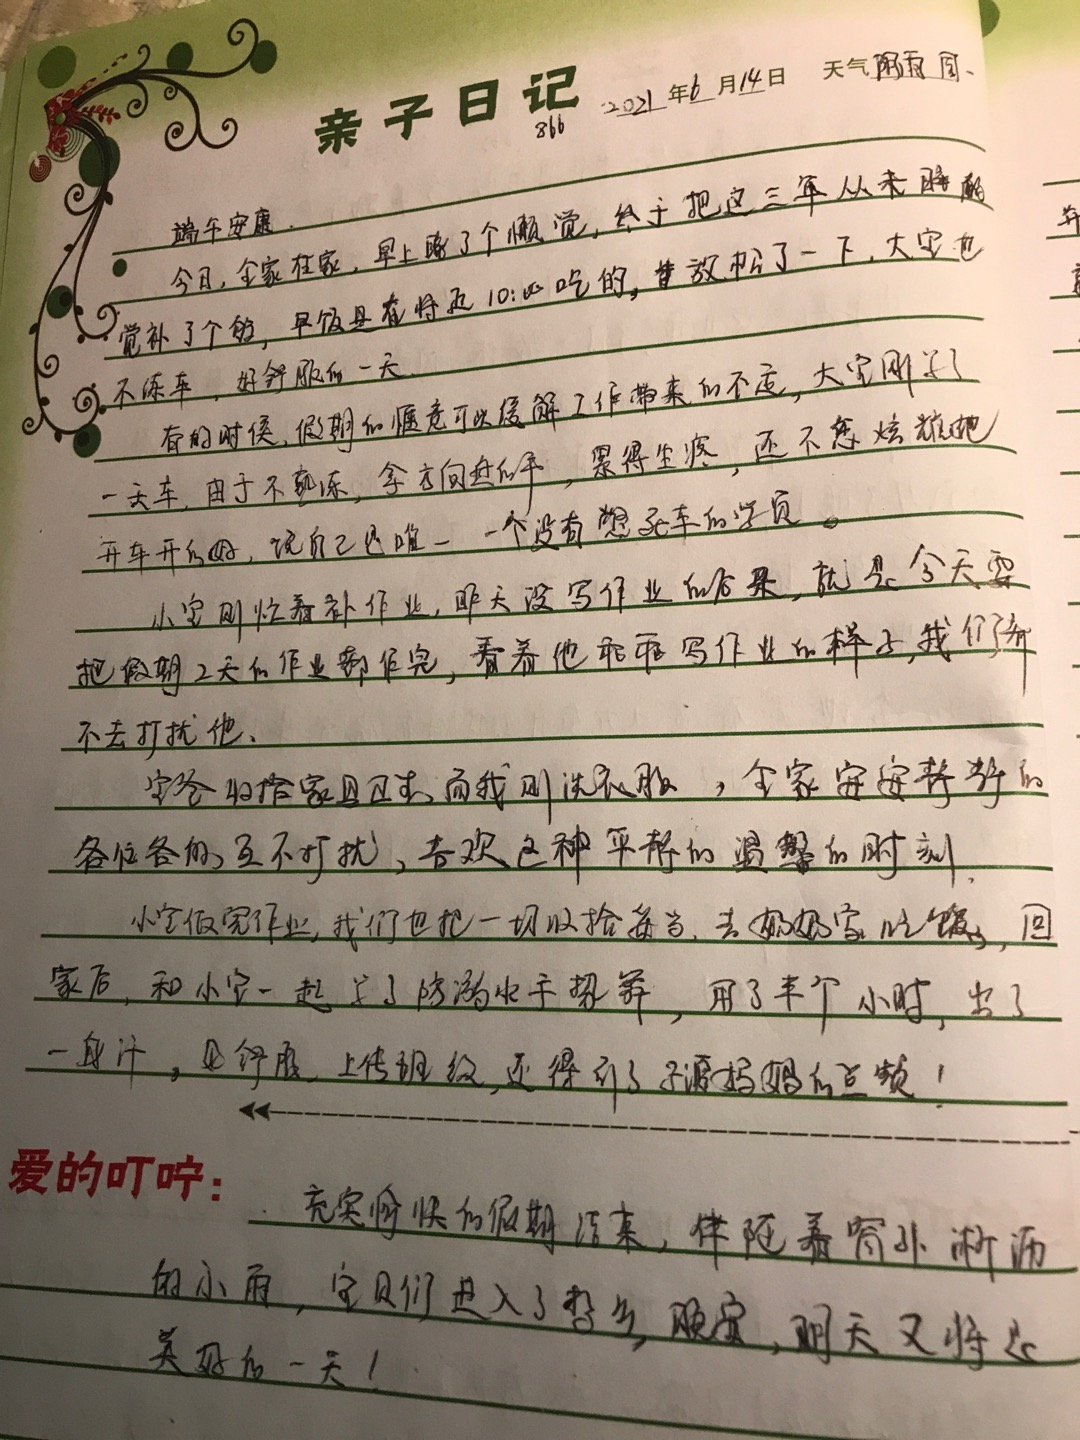 亲子日记
866
2021年6月14日 天气 阴雨 周一
端午安康.
今日,全家在家,早上睡了个懒觉,终于把这三年从未睡的
觉补了个饱,早饭是在将近10:00吃的,放松了一下,大宝也
不练车,好舒服的一天.
有的时候,假期的惬意可以缓解工作带来的不适,大宝刚学了
一天车,由于不熟练,拿方向盘的手,累得生疼,还不忘炫耀她
开车开的好,说自己是唯一一个没有熄死车的学员。
小宝则忙着补作业,昨天没写作业的后果,就是今天要
把假期2天的作业都作完,看着他乖乖写作业的样子,我们
不去打扰他.
宝爸收拾家具,而我则洗衣服,全家安安静静的
各忙各的,互不打扰,喜欢这种平静的温馨的时刻.
小宝做完作业,我们也把一切收拾妥当,去奶奶家吃饭,回
家后,和小宝一起学了防溺水手势舞,用了半个小时,出了
一身汗,见舒服,上传班级,还得到了妈妈的点赞!
爱的叮咛:
充实愉快的假期结束,伴随着窗外淅沥
的小雨,宝贝们进入了梦乡,晚安,明天又将是
美好的一天!